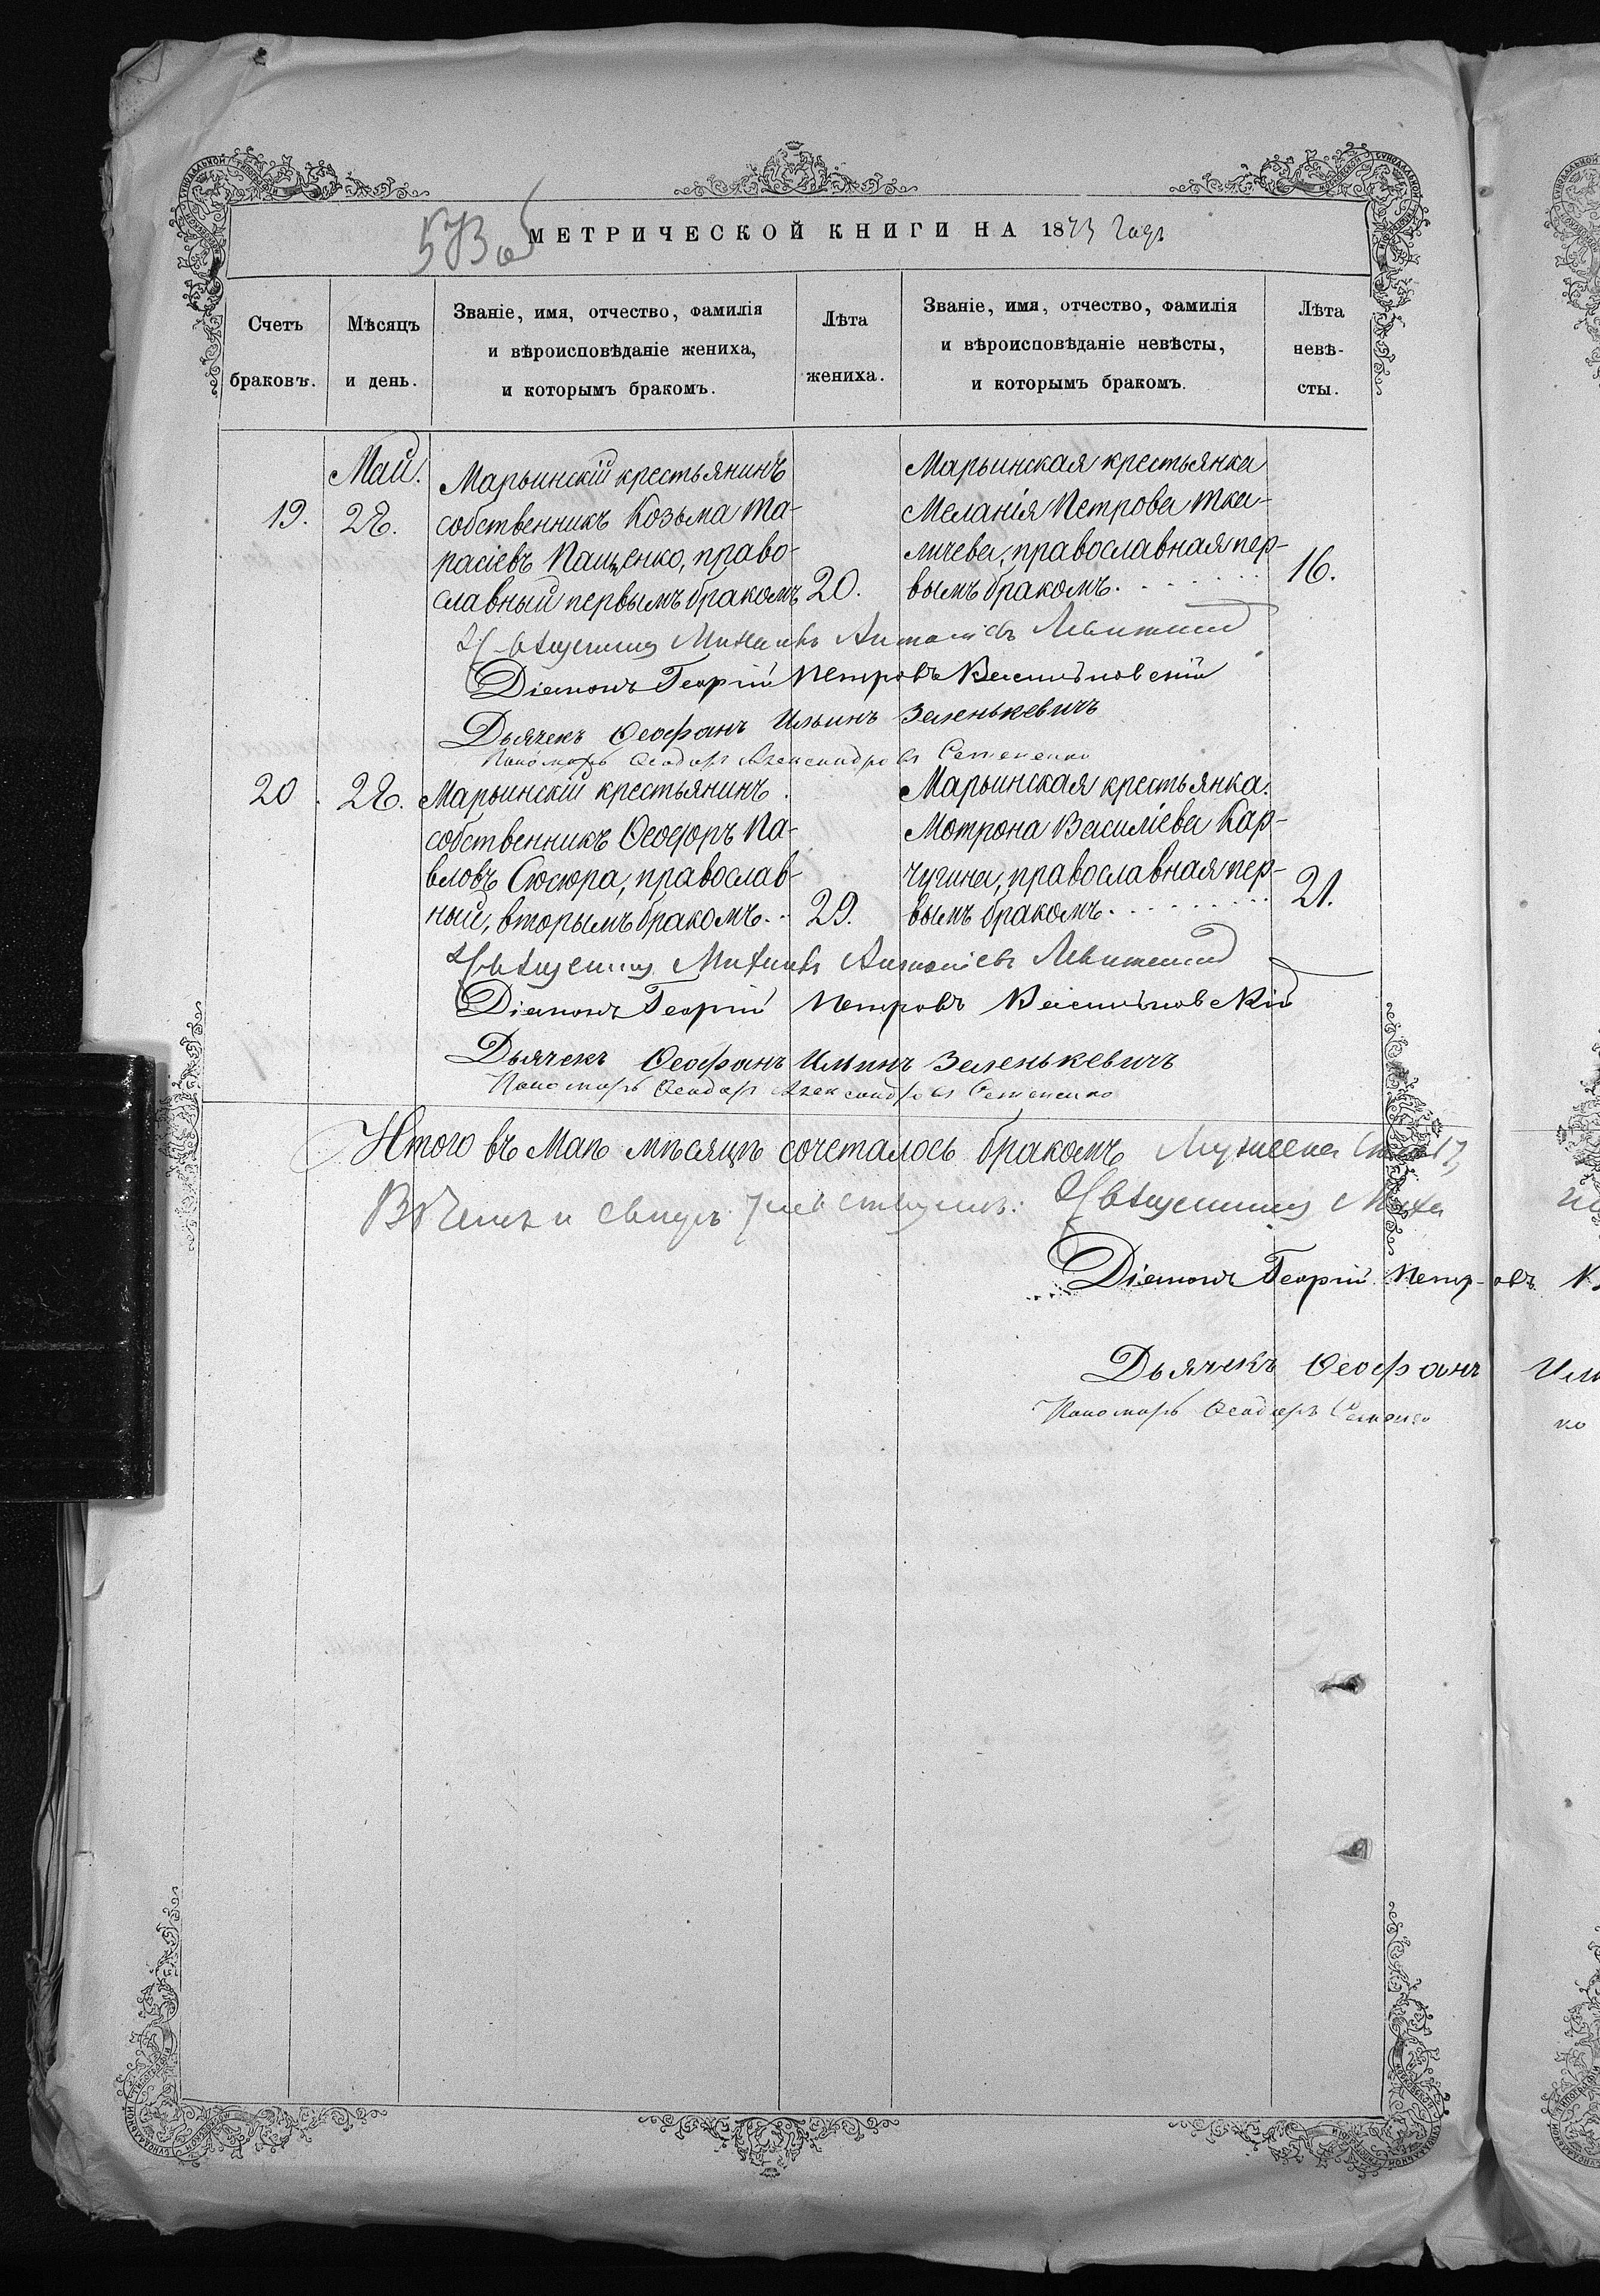 573 об
МЕТРИЧЕСКОЙ КНИГИ НА 1873 Годъ
Счетъ браковъ.
Мѣсяцъ и день.
Званіе, имя, отчество, фамилія
и вѣроисповѣданіе жениха,
и которымъ бракомъ.
Лѣта
жениха.
Званіе, имя, отчество, фамилія
и вѣроисповѣданіе невѣсты,
и которымъ бракомъ.
Лѣта
невѣ-
сты.
Май.
19.
28.
Марьинскій крестьянинъ
собственникъ Козьма Та-
расіевъ Пащенко, право-
славный первымъ бракомъ
20.
Марьинская крестьянка
Меланія Петрова Тка-
личева, православная пер-
вымъ бракомъ.
16.
Священникъ Михаилъ Антоніевъ
Діаконъ Георгій Петровъ
Дьячекъ Ѳеофанъ Ильинъ Зеленькевичъ
Пономарь Ѳеодоръ Александровъ Семененко
20.
28.
Марьинскій крестьянинъ
собственникъ Ѳеодоръ Па-
вловъ Сюсюра, православ-
ный, вторымъ бракомъ.
29.
Марьинская крестьянка
Мотрона Василіева Кар-
чугина, православная пер-
вымъ бракомъ.
21.
Священникъ Михаилъ Антоніевъ
Діаконъ Георгій Петровъ
Дьячекъ Ѳеофанъ Ильинъ Зеленькевичъ
Пономарь Ѳеодоръ Александровъ Семененко
Итого въ Маѣ мѣсяцѣ сочеталось бракомъ
Священникъ Миха
Діаконъ Георгій Петровъ
Дьячекъ Ѳеофанъ Иль
Пономарь Ѳеодоръ